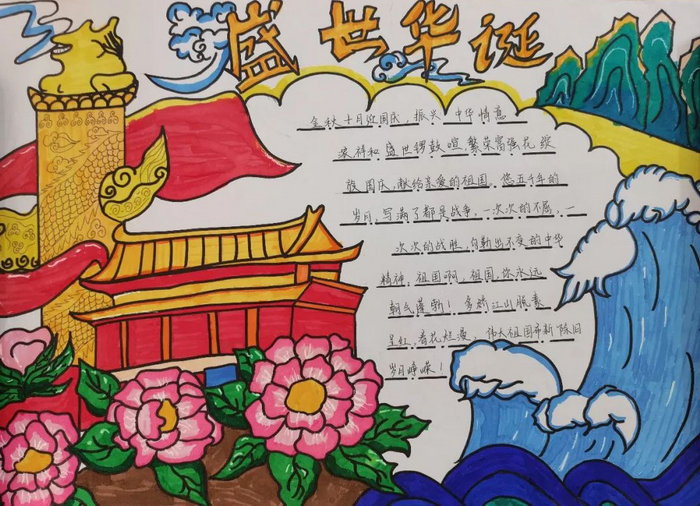 盛世华诞
金秋十月迎国庆，振兴中华情意
浓祥和盛世锣鼓喧繁荣富强花绽
放国庆，献给亲爱的祖国，您五千年的
岁月，写满了都是战争，一次次的不屈，一
次次的战胜，勾勒出不变的中华
精神，祖国啊，祖国，你永远
朝气蓬勃！多娇江山披素
呈红，春花烂漫，伟大祖国布新除旧
岁月峥嵘！